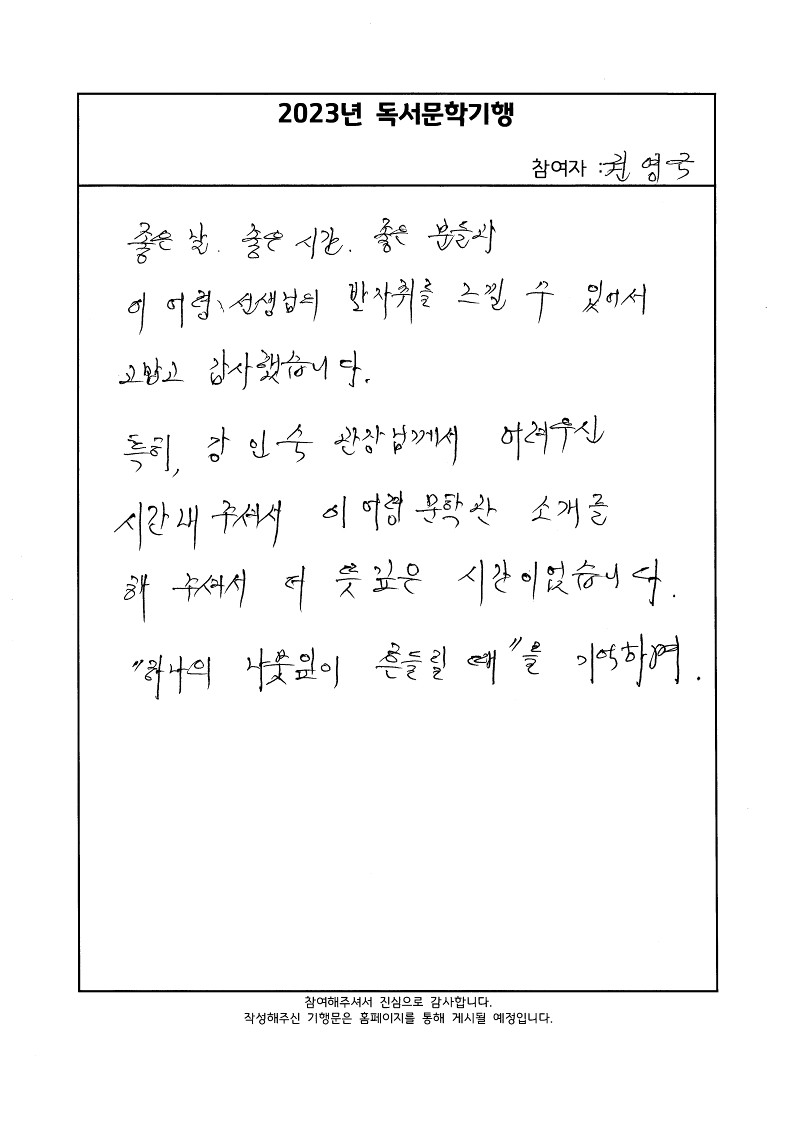 2023년 독서문학기행
참여자 : 권영국
좋은 날. 좋은 시간. 좋은 분들과
이 어령 선생님의 발자취를 느낄 수 있어서
고맙고 감사했습니다.
특히, 강 인 숙 관장님께서 어려우신
시간 내 주셔서 이 어령 문학관 소개를
해 주셔서 더 뜻 깊은 시간이었습니다.
"하나의 나뭇잎이 흔들릴 때"를 기억하며.
참여해주셔서 진심으로 감사합니다.
작성해주신 기행문은 홈페이지를 통해 게시될 예정입니다.